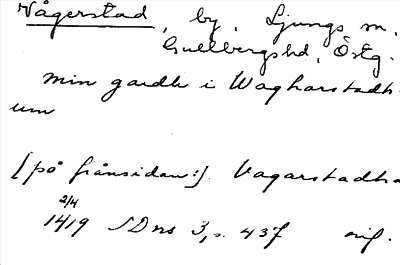 Vågerstad, by, Ljungs sn,
Gullbergs hd, Östg.
min gardh i Wagharstadh
um
[på frånsidan:]. Vagarstadha
2/4
1419 SD ns 3, s. 437